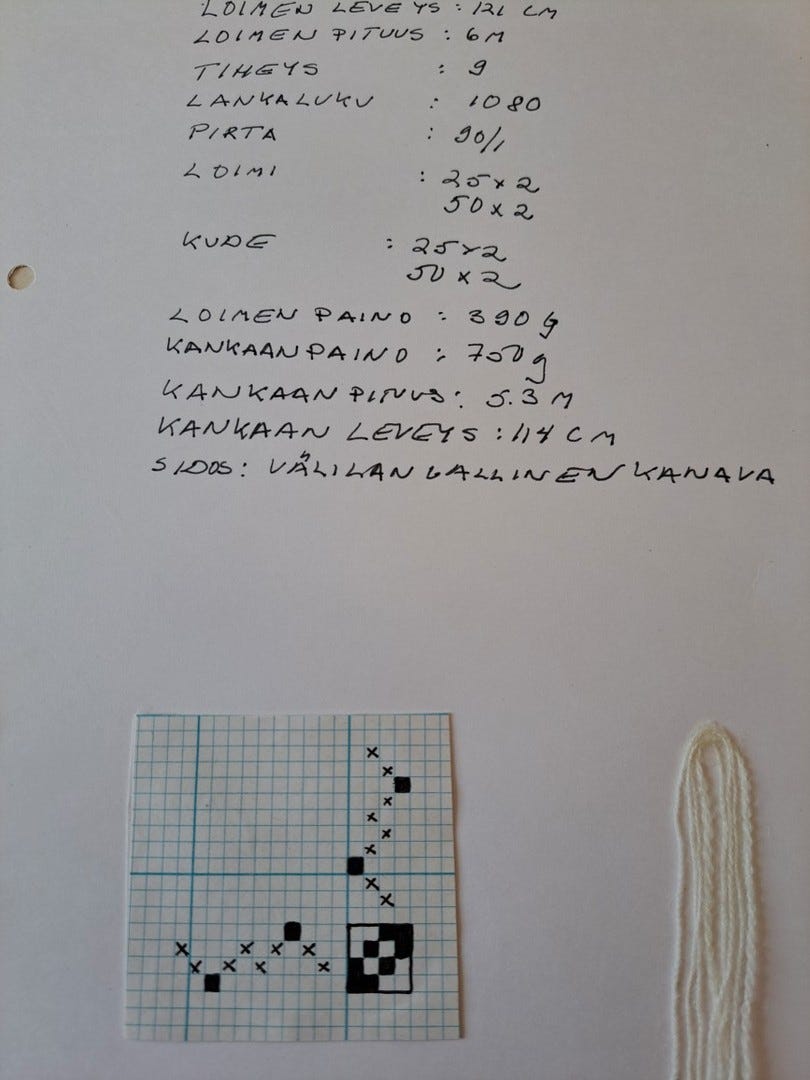 LOIMEN LEVEYS : 121 CM
LOIMEN PITUUS : 6 M
TIHEYS : 9
LANKALUKU : 1080
PIRTA : 90/1
LOIMI : 25 x 2
50 x 2
KUDE : 25 x 2
50 x 2
LOIMEN PAINO : 390 g
KANKAAN PAINO : 750 g
KANKAAN PITUUS : 5.3 M
KANKAAN LEVEYS : 114 CM
SIDOS : VÄLILANGALLINEN KANAVA